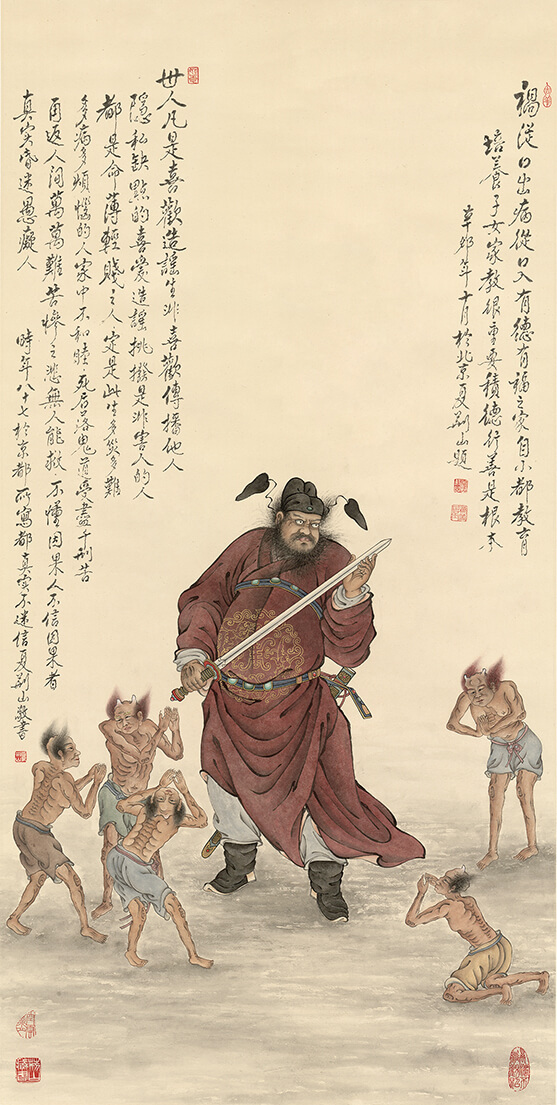 禍從口出病從口入有德有福之家自小都教育
培養子女家教很重要積德行善是根本
辛卯年十月於北京夏荆山題
世人凡是喜歡造謠生非喜歡傳播他人
隱私缺點的喜愛造謠挑撥是非害人的人
都是命薄輕賤之人定是此生多災多難
多病多煩惱的人家中不和睦死后落鬼道受盡千刑苦
再返人间萬萬難苦慘之悲無人能救不懂因果人不信因果者
真实昏迷愚癡人
時年八十七於京都所寫都真实不迷信夏荆山敬書